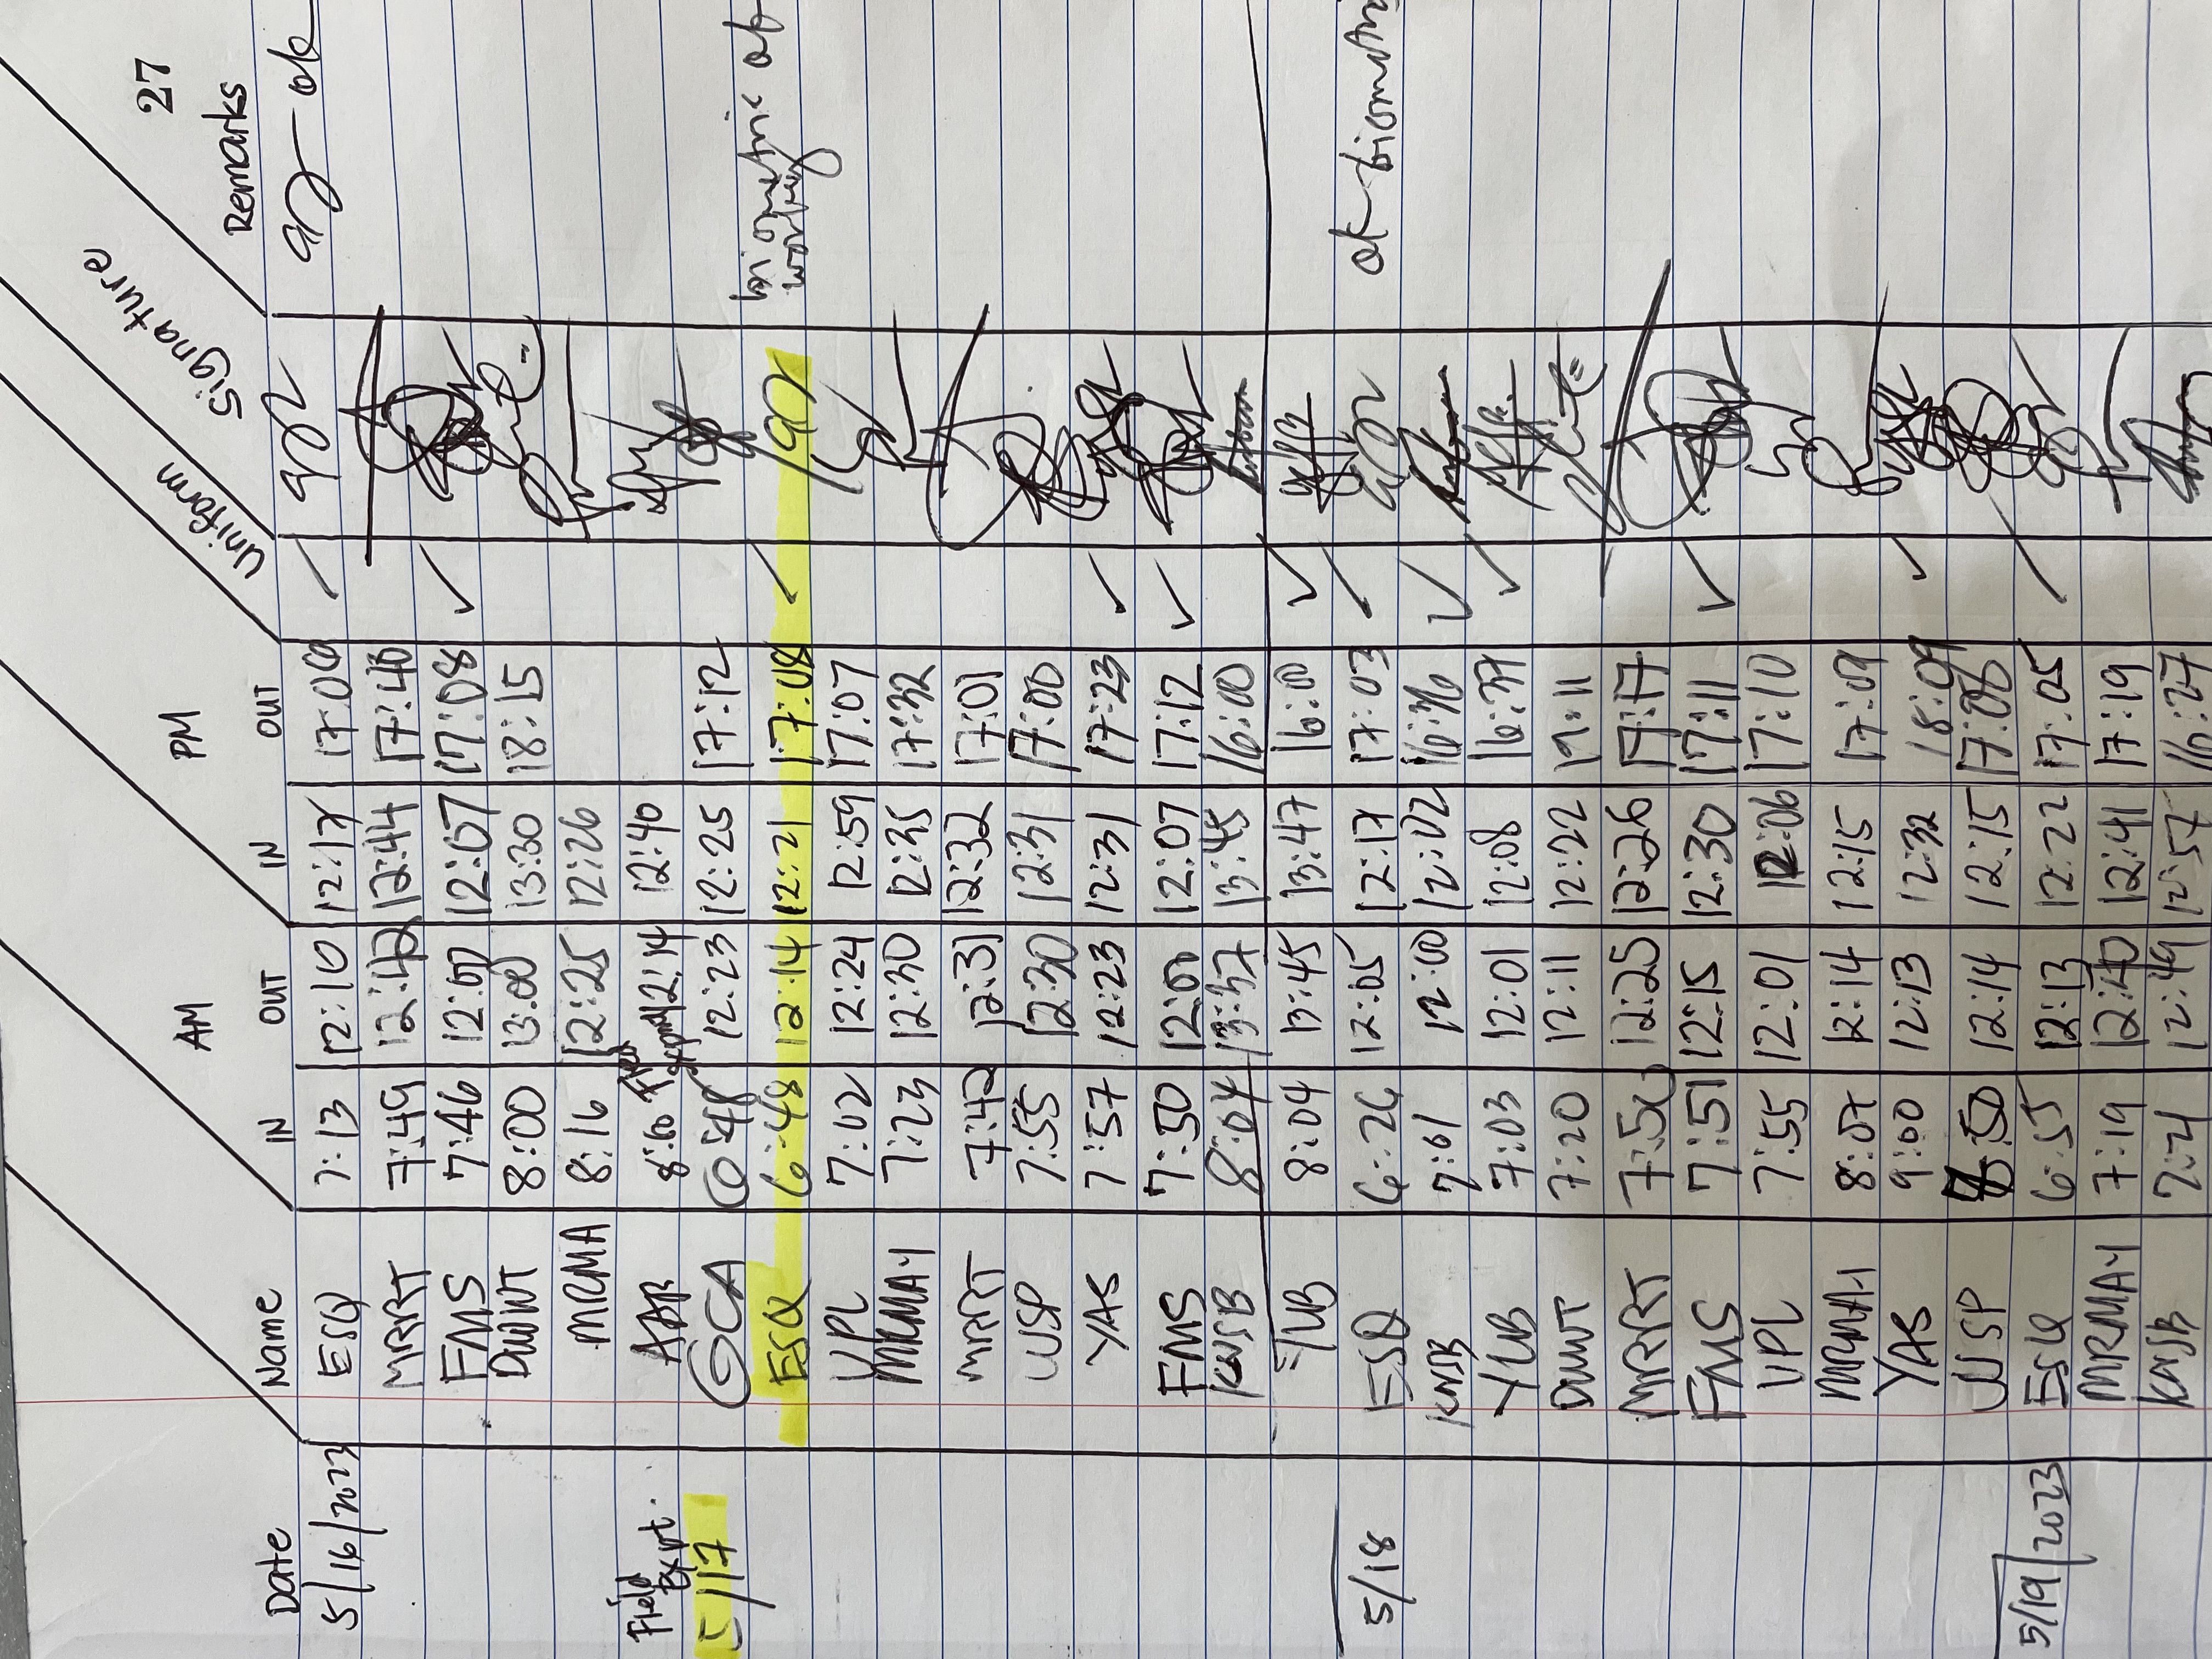 27
AM PM
Date Name IN OUT IN OUT Uniform Signature Remarks
5/16/2023 ESQ 7:13 12:10 12:17 17:06 ok
MRRT 7:49 12:42 12:44 17:40
FMS 7:46 12:00 12:07 17:08
DWWT 8:00 13:00 13:30 18:15
MRMA 8:16 12:25 12:26
Field Expt. ADR 8:00 12:14 12:40
5/17 GCA 6:48 12:23 12:25 17:12
ESQ 6:48 12:14 12:21 17:08 biometric ok
VPL 7:02 12:24 12:59 17:07 working
MRMAY 7:23 12:30 12:35 17:32
MRRT 7:42 12:31 12:32 17:01
WSP 7:55 12:30 12:31 17:00
YAS 7:57 12:23 12:31 17:23
FMS 7:50 12:00 12:07 17:12
KWSB 8:04 13:37 13:45 16:00
YUB 8:04 13:45 13:47 16:00
5/18 ESQ 6:26 12:05 12:17 17:03 ok-
KWSB 7:01 12:00 12:02 16:36
YUB 7:03 12:01 12:08 16:37
DWWT 7:20 12:11 12:22 19:11
MRRT 12:25 12:26 17:17
FMS 7:51 12:15 12:30 17:11
VPL 7:55 12:01 12:06 17:10
8:07 12:14 12:15 17:09
YAS 9:00 12:13 12:32 18:09
WSP 12:14 12:15 17:08
5/19/2023 ESQ 6:55 12:13 12:22 17:05
MRMAY 7:19 12:40 12:41 17:19
KWSB 12:49 12:57 16:27